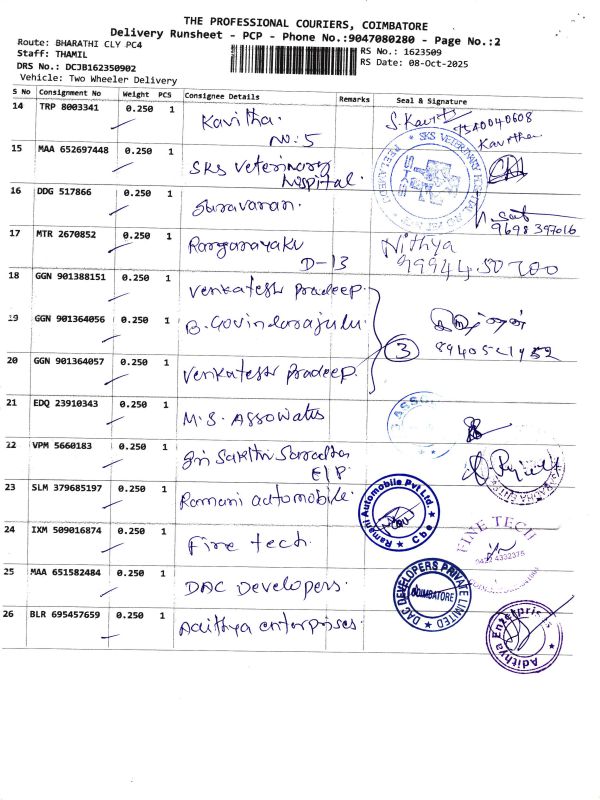 THE PROFESSIONAL COURIERS, COIMBATORE
Delivery Runsheet - PCP - Phone No.:9047080280 - Page No.:2
Route: BHARATHI CLY PC4
Staff: THAMIL
DRS No.: DCJB162350902
Vehicle: Two Wheeler Delivery
RS No.: 1623509
RS Date: 08-Oct-2025
S No Consignment No Weight PCS Consignee Details Remarks Seal & Signature
14 TRP 8003341 0.250 1 Kavitha. No. 5 S. Kavitha 7540040608 Kavitha
15 MAA 652697448 0.250 1 SKS veterinary hospital. SKS VETERINARY HOSPITAL
16 DDG 517866 0.250 1 Saravanan. 9698397016
17 MTR 2670852 0.250 1 Ranganayaki D-13 Nithya 99944 50700
18 GGN 901388151 0.250 1 Venkatesh Pradeep.
19 GGN 901364056 0.250 1 B. Govindarajulu. 3
20 GGN 901364057 0.250 1 Venkatesh Pradeep.
21 EDQ 23910343 0.250 1 M.S. Associates
22 VPM 5660183 0.250 1 Sri Sakthi E/P.
23 SLM 379685197 0.250 1 Ramani automobile. Ramani Automobile Pvt Ltd. ★ Cbe ★
24 IXM 509016874 0.250 1 Fine tech. FINE TECH 0422 4332375
25 MAA 651582484 0.250 1 DAC Developers. DAC DEVELOPERS PRIVATE LIMITED ★ COIMBATORE
26 BLR 695457659 0.250 1 Adithya enterprises. Adithya Enterprises ★